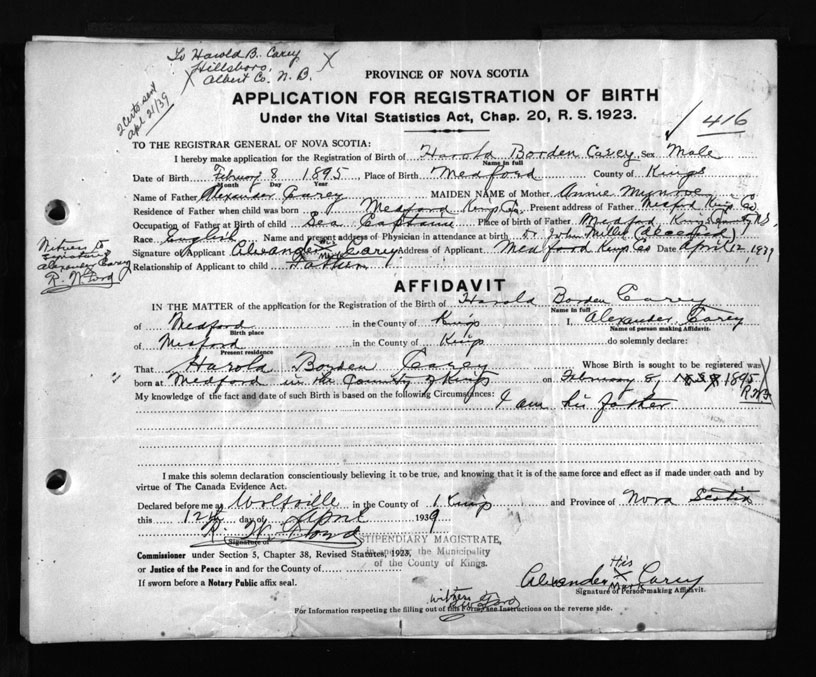 To Harold B. Carey
Hillsboro,
Albert Co. N. B.
2 Certs sent
Apl 21/39
PROVINCE OF NOVA SCOTIA
APPLICATION FOR REGISTRATION OF BIRTH
Under the Vital Statistics Act, Chap. 20, R. S. 1923.
416
TO THE REGISTRAR GENERAL OF NOVA SCOTIA:
I hereby make application for the Registration of Birth of Harold Borden Carey Sex Male
Name in full
Date of Birth February 8 1895 Place of Birth Medford County of Kings
Month Day Year
Name of Father Alexander Carey MAIDEN NAME of Mother Annie Munroe
Residence of Father when child was born Medford Kings Co. Present address of Father Medford Kings Co
Occupation of Father at Birth of child Sea Captain Place of birth of Father Medford Kings County N.S.
Race English Name and present address of Physician in attendance at birth Dr John Miller (Deceased)
Signature of Applicant Alexander His X Mark Carey Address of Applicant Medford Kings Co Date April 12, 1939
Relationship of Applicant to child Father
Witness to
Signature
Alexander Carey
AFFIDAVIT
IN THE MATTER of the application for the Registration of the Birth of Harold Borden Carey
Name in full
of Medford in the County of Kings I, Alexander Carey
Birth place Name of person making Affidavit.
of Medford in the County of Kings do solemnly declare:
Present residence
That Harold Borden Carey Whose Birth is sought to be registered was
born at Medford in the County of Kings on February 8, 1895
My knowledge of the fact and date of such Birth is based on the following Circumstances: I am his father
I make this solemn declaration conscientiously believing it to be true, and knowing that it is of the same force and effect as if made under oath and by
virtue of The Canada Evidence Act.
Declared before me at Wolfville in the County of Kings and Province of Nova Scotia
this 12th day of April 1939
Signature of
STIPENDIARY MAGISTRATE,
in and for the Municipality
of the County of Kings.
Commissioner under Section 5, Chapter 38, Revised Statutes, 1923,
or Justice of the Peace in and for the County of
If sworn before a Notary Public affix seal.
Alexander His X Mark Carey
Signature of Person making Affidavit.
witness
For Information respecting the filling out of this Form, see Instructions on the reverse side.